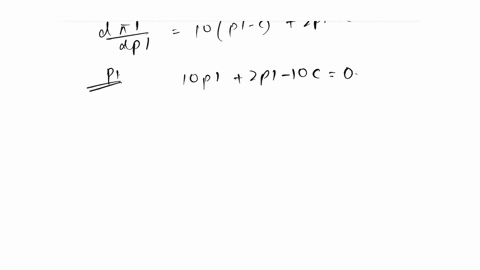 dπ1/dp1 = 10(p1-c) + 2p1
p1 10p1 + 2p1-10c = 0.